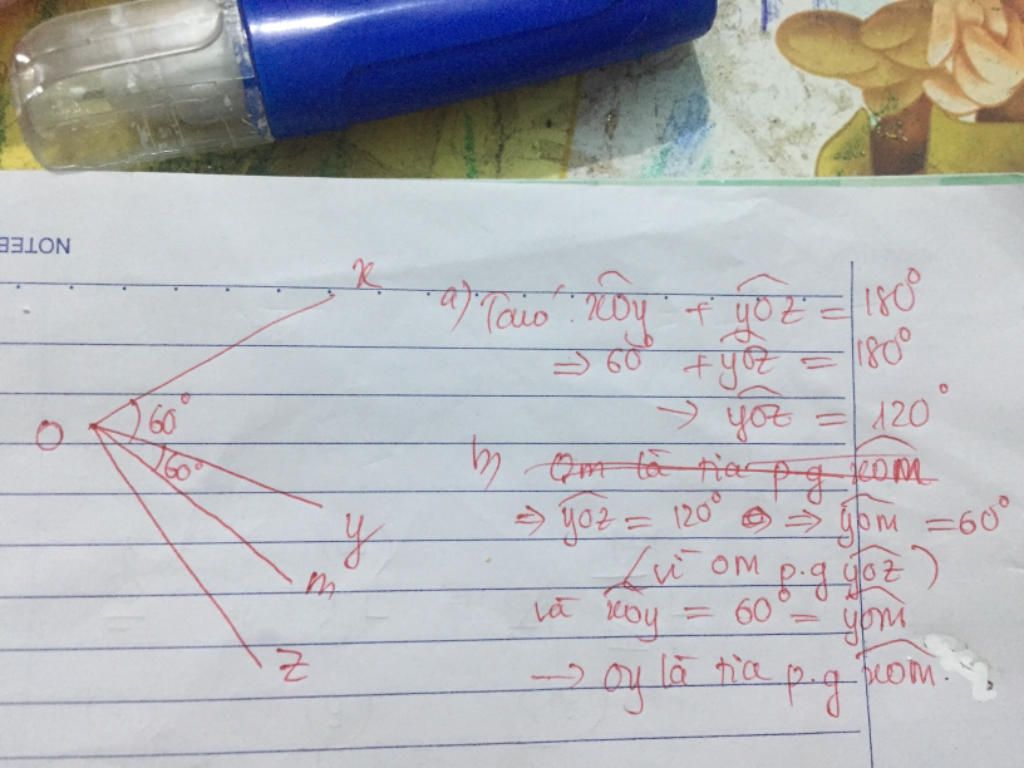 NOTEB
x
O
60°
60°
y
m
z
a) Ta có: xOy + yOz = 180°
⇒ 60° + yOz = 180°
→ yOz = 120°
b) Om là tia p.g xOm
⇒ yOz = 120° ⇒ yOm = 60°
(vì Om p.g yOz)
và xOy = 60° = yOm
→ Oy là tia p.g xOm.